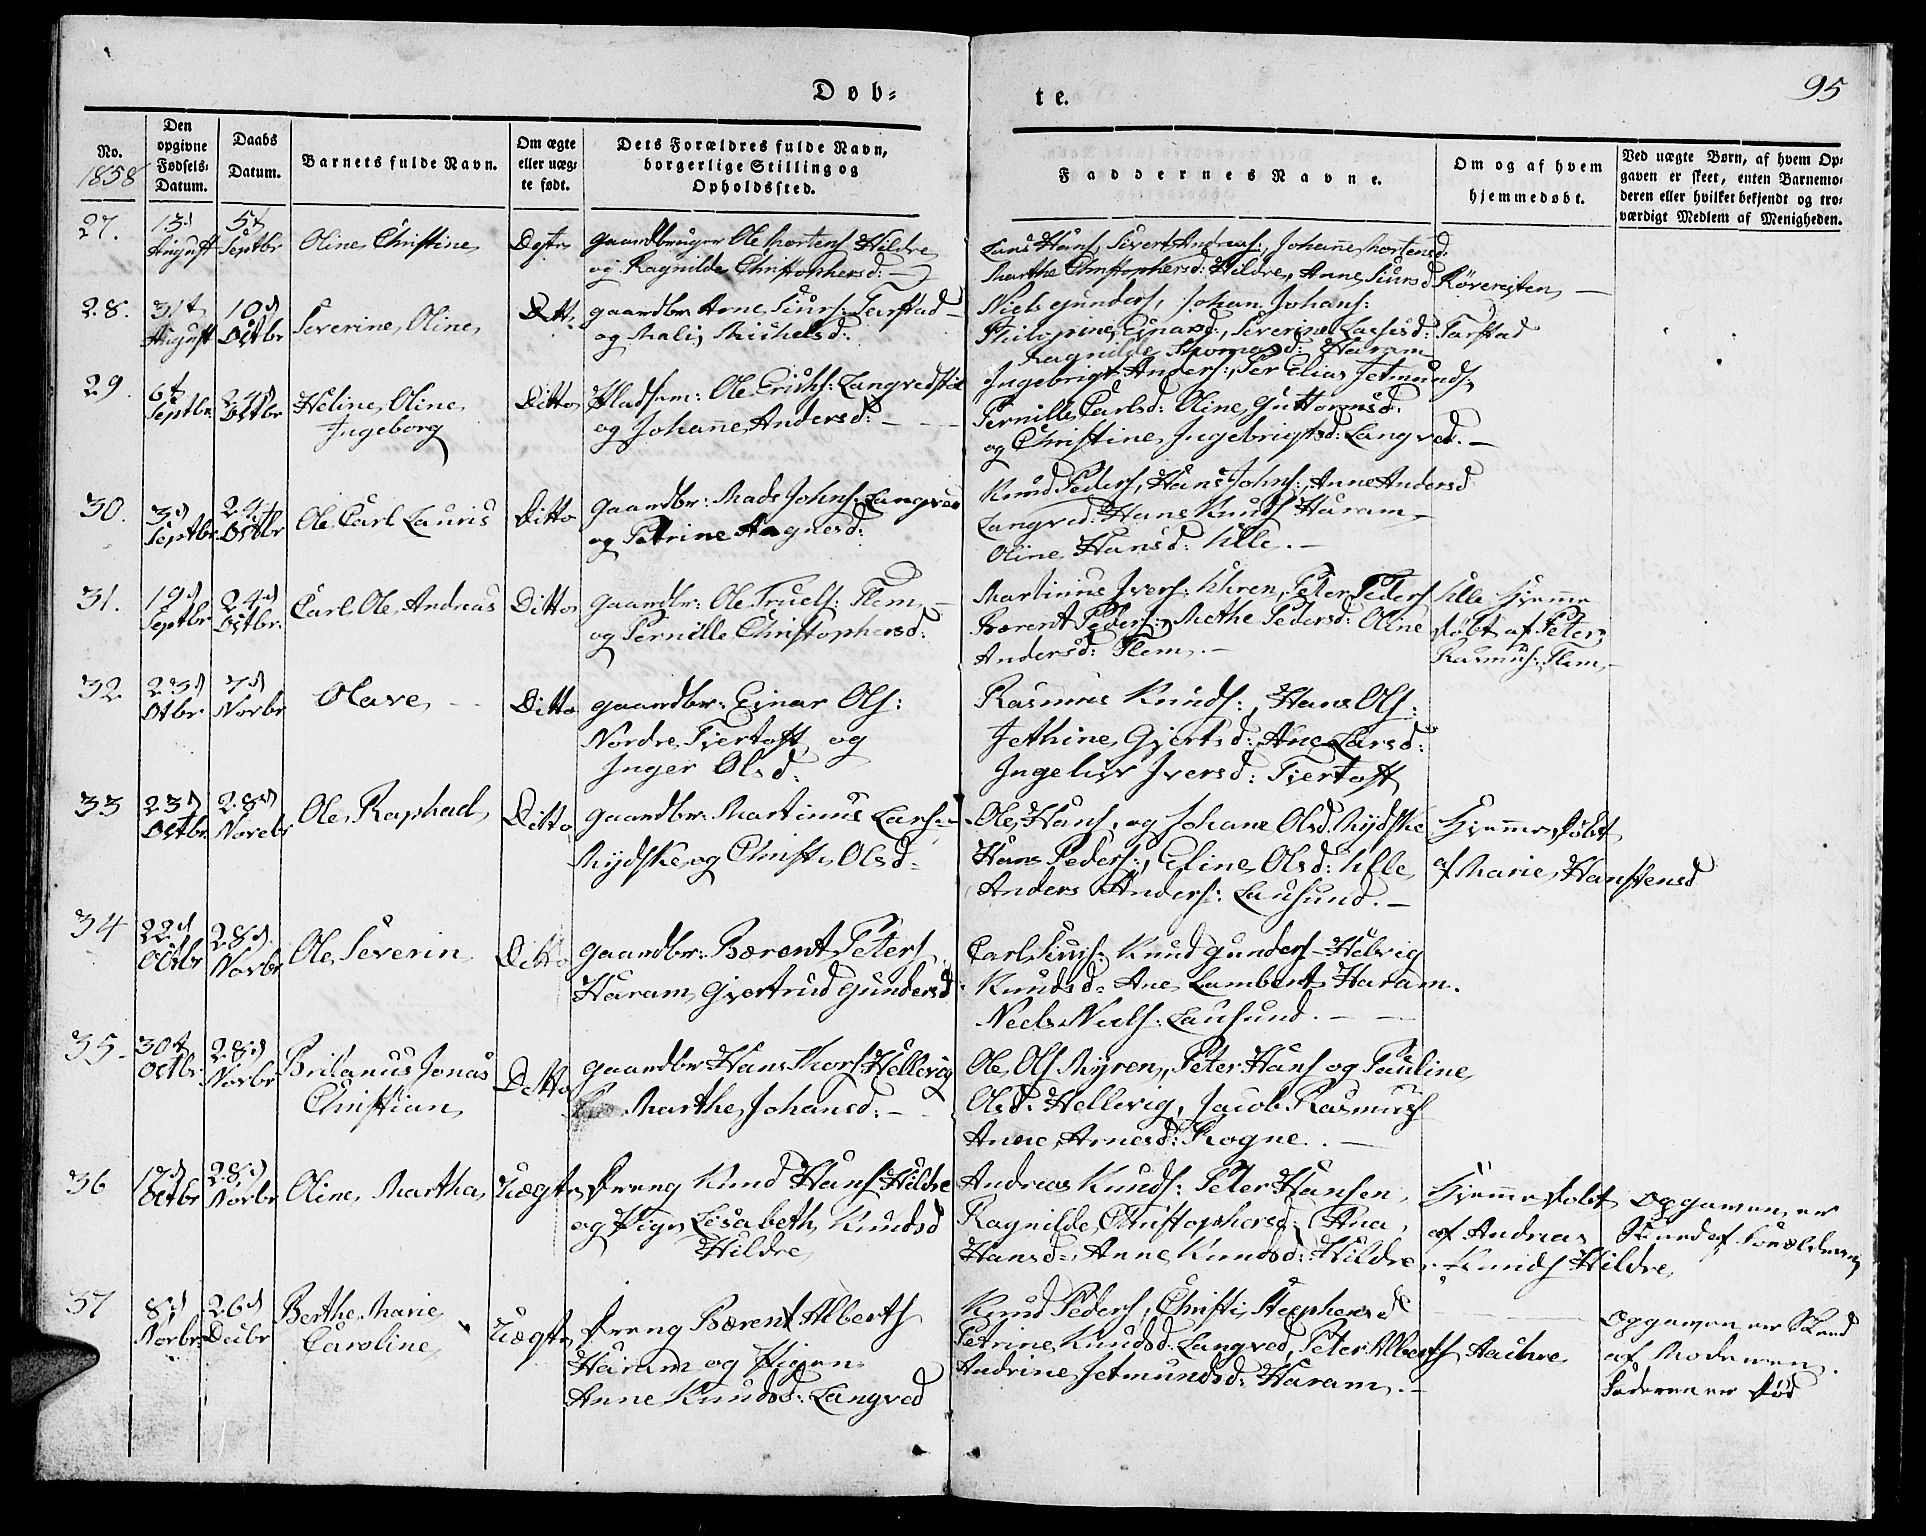 Døb-
te.
95
No.
1858
Den
opgivne
Fødsels-
Datum.
Daabs
Datum.
Barnets fulde Navn.
Om ægte
eller uæg-
te født.
Dets Forældres fulde Navn,
borgerlige Stilling og
Opholdssted.
Faddernes Navne.
Om og af hvem
hjemmedøbt.
Ved uægte Børn, af hvem Op-
gaven er skeet, enten Barnemo-
deren eller hvilket bekjendt og tro-
værdigt Medlem af Menigheden.
27.
13d
August
5t
Septbr
Oline Christine
gaardbruger Ole Mortens Hildre
og Ragnilde Christophersd: —
Lars Hans, Sivert Andreas, Johanne Mortensd:
Marthe Christophersd: Hildre, Anne Siursd Røverigten —
28.
31t
August
10d
Octbr
Severine Oline
Ditt.
gaardbr Arne Siurs: Tarstad —
og Mali Michelsd:
Niels Gunders, Johan Johans:
Einarsd:, Severine Lassesd: Tarstad
Ragnilde Thomasd: Haram
29.
6t
Septbr
24d
Octbr
Heline Oline
Ingeborg
Ditto
Pladsm: Ole Erichs: Langvedstie
og Johanne Andersd: — —
Ingebrigt Anders:, Per Elias Jetmunds
Pernille Carlsd: Oline Guttormsd:
og Christine Ingebrigtsd: Langved. —
30.
3d
Septbr
24t
Octbr
Ole Carl Lauris
Ditto
gaardbr: Mads Johns: Langved
og Petrine Magnesd:
Knud Peders, Hans Johns:, Anne Andersd
Langved: Hans Knuds Haram
Oline Hansd: Ulle. —
31.
19d
Septbr
24d
Octbr.
Carl Ole Andreas
Ditto
gaardbr: Ole Truels: Flem —
og Pernille Christophersd:
Martinus Ivers: Uhren, Peter Peders Ulle Hjemme
Bærent Peders:, Methe Pedersd: Oline døbt af Peter
Andersd: Flem. —
Rasmus: Flem —
32
23d
Otbr
7d
Norbr
Olave —
Ditto
gaardbr: Einar Ols:
Nordre Fjertoft og
Inger Olsd:
Rasmus Knuds:, Hans Ols:
Jethine Gjertsd: Ane Larsd:
Ingeliv Iversd: Fjertoft
33
23d
Octbr
28d
Novebr
Ole Raphael
Ditto
gaardbr: Martinus Lars:
Mydske og Christi Olsd:
Ole Hans, og Johane Olsd Mydske
Hans Peders:, Eline Olsd: Ulle
Anders Anders: Lausund. —
Hjemmedøbt
af Marie Hanstensd
34
22d
Octbr
28d
Novbr
Ole Severin
Ditto
gaardbr: Bærent Peters
Haram, Gjertrud Gundersd:
Carl Siurs: Knud Gunders — Helvig
Knudsd: Ane Lambert Haram.
Niels Niels: Lausund. — —
35.
30t
Octbr
28d
Norbr
Britanus Jonas
Christian
Ditto
gaardbr Hans Thors Hellevig
Marthe Johansd: —
Ole Ols Myren, Peter Hans og Pauline
Olsd: Hellevig, Jacob Rasmus
Anne Arnesd: Rogne. —
36
17d
Octbr
28d
Norbr
Oline Martha
Uægte
Dreng Knud Hans Hildre
og Pige Lisabeth Knudsd
Hildre
Andreas Knuds: Peter Hansen
Ragnilde Christophersd: Ana
Hansd: Anne Knudsd: Hildre
Hjemmedøbt
af Andreas
Knuds Hildre
Opgaven er
Skeed af Forældrene
37
8d
Norbr
26d
Decbr
Berthe Marie
Caroline
Uægte
Dreng Bærent Alberts
Haram og Pigen
Anne Knudsd: Langved
Knud Peders, Christi Stephensd
Petrine Knudsd: Langved, Peter Alberts
Andrine Jetmundsd: Haram. —
Opgaven er Skeed
af Moderen.
Faderen er død